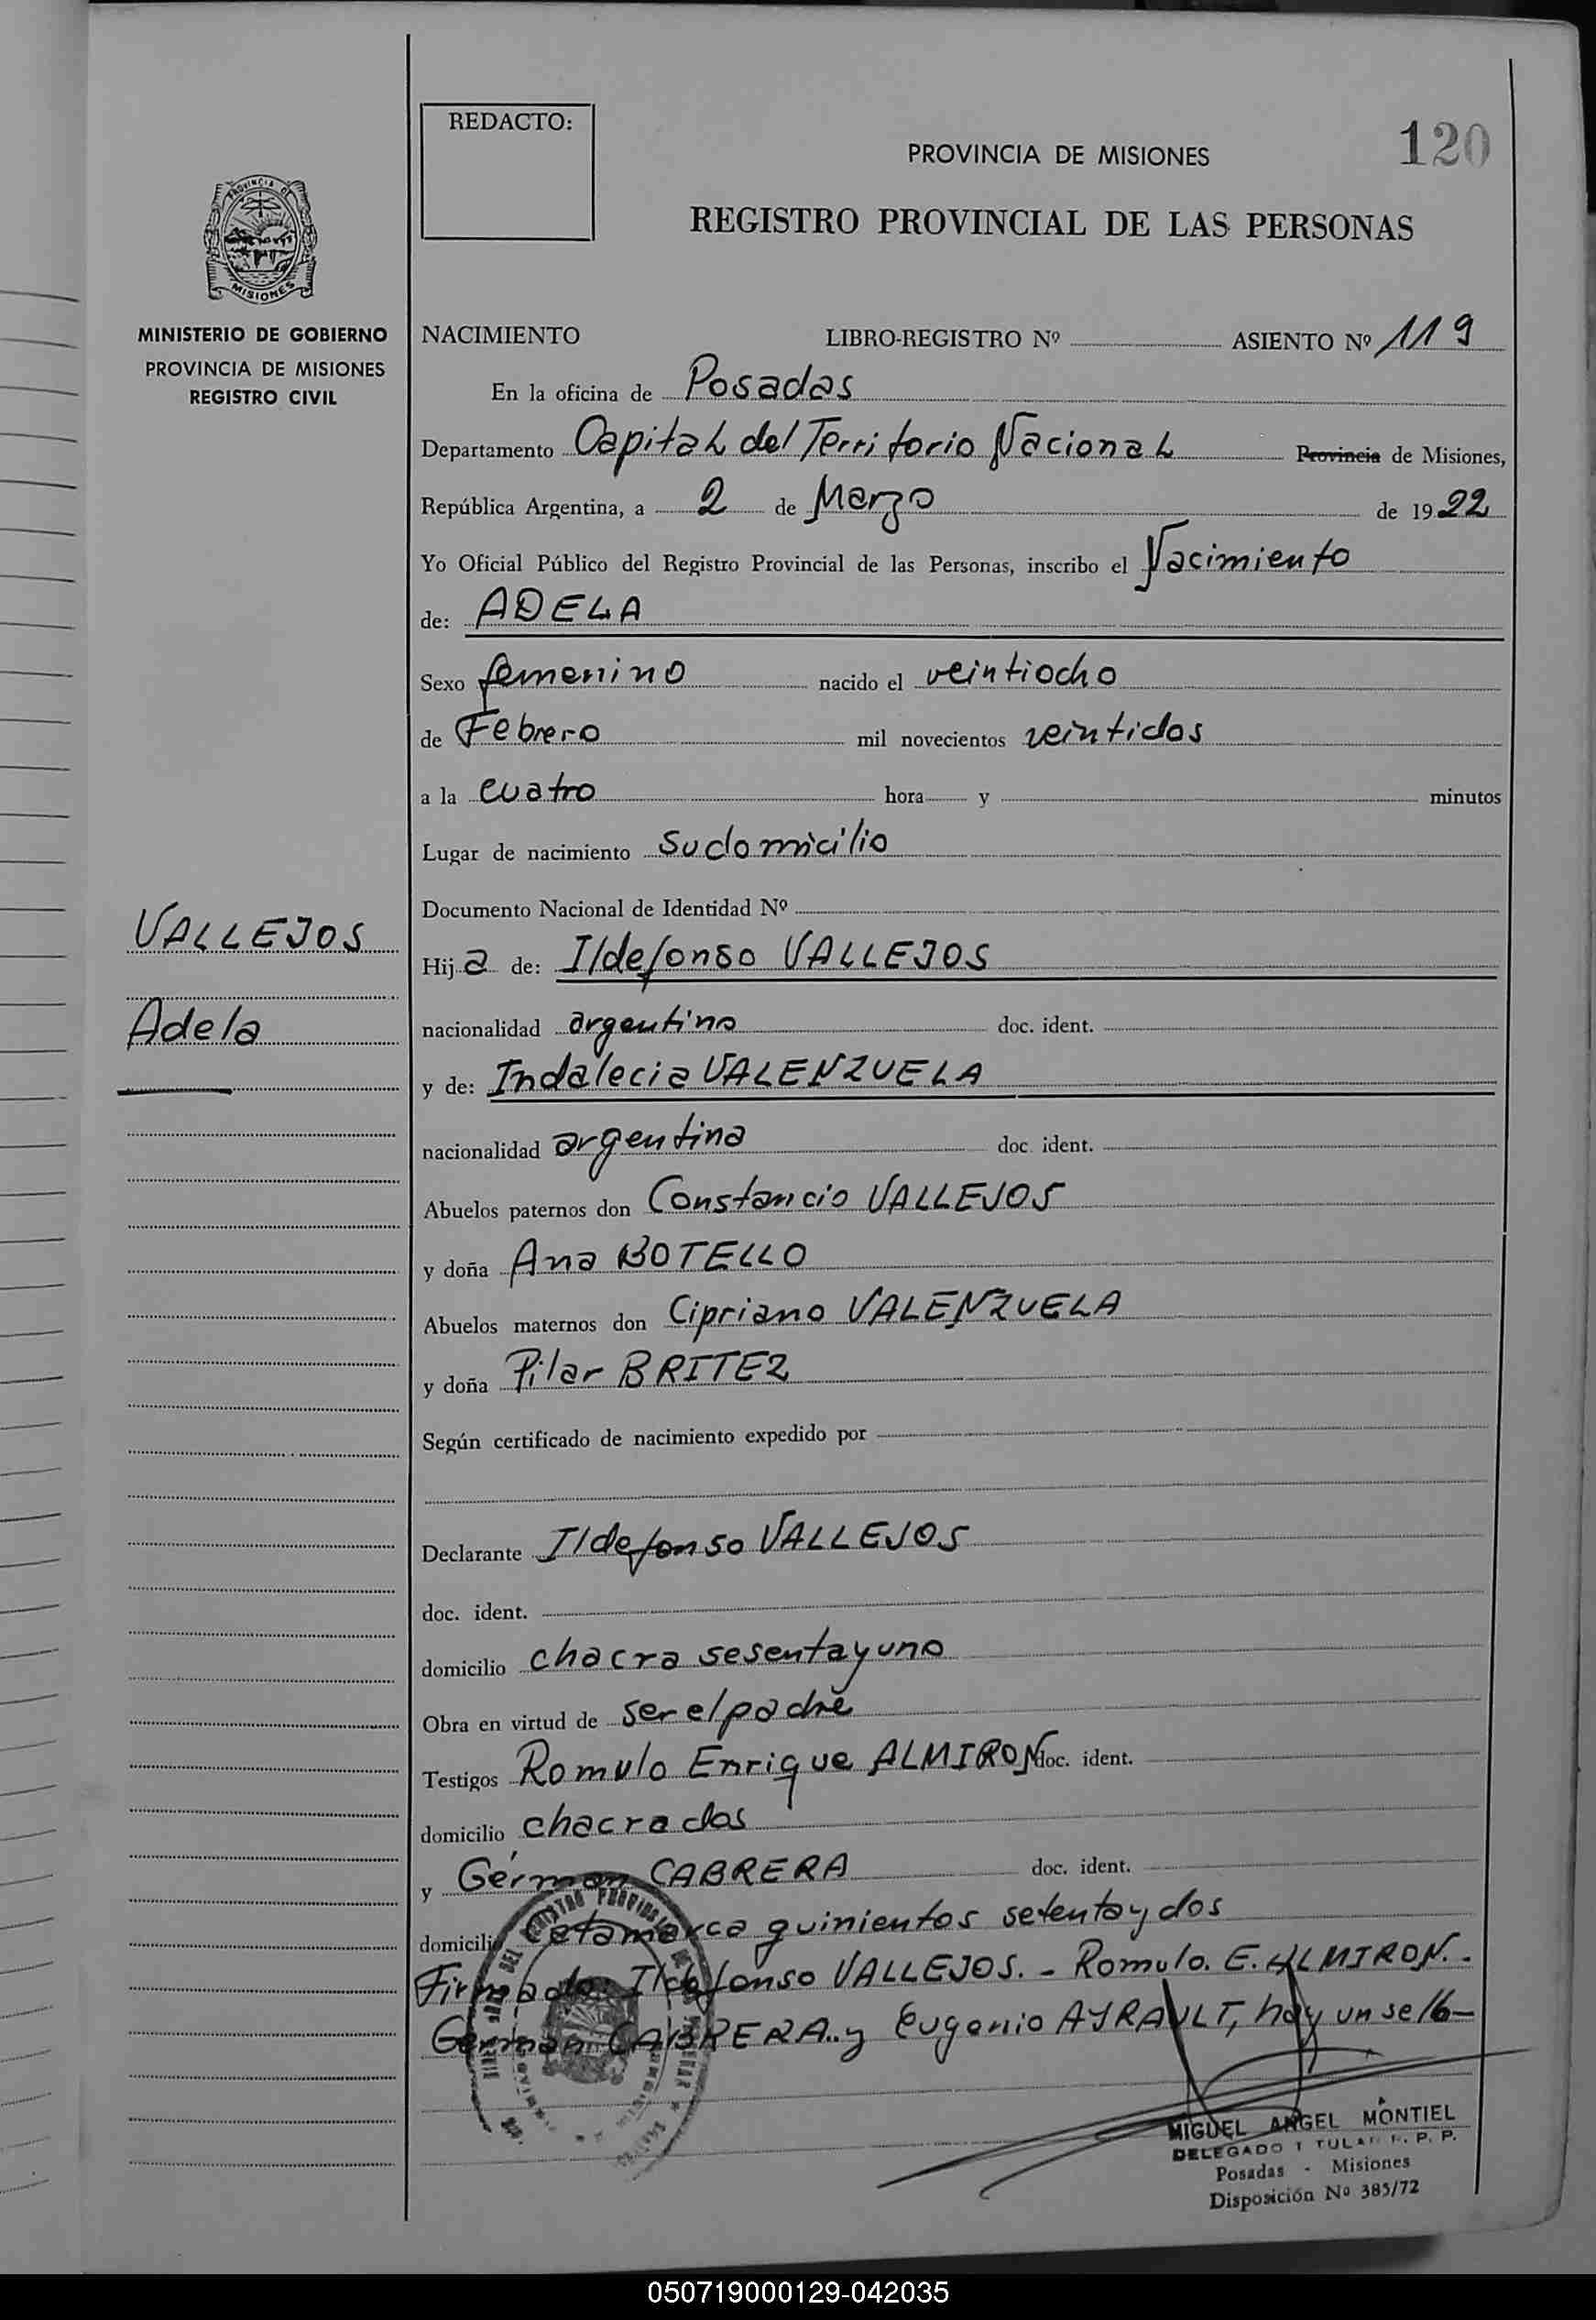 REDACTO:
120
PROVINCIA DE MISIONES
REGISTRO PROVINCIAL DE LAS PERSONAS
PROVINCIA DE
MISIONES
MINISTERIO DE GOBIERNO
PROVINCIA DE MISIONES
REGISTRO CIVIL
NACIMIENTO LIBRO-REGISTRO Nº ASIENTO Nº 119
En la oficina de Posadas
Departamento Capital del Territorio Nacional Provincia de Misiones,
República Argentina, a 2 de Marzo de 1922
Yo Oficial Público del Registro Provincial de las Personas, inscribo el Nacimiento
de: ADELA
Sexo femenino nacido el veintiocho
de Febrero mil novecientos veintidos
a la cuatro hora y minutos
Lugar de nacimiento Su domicilio
Documento Nacional de Identidad Nº
VALLEJOS
Adela
Hij a de: Ildefonso VALLEJOS
nacionalidad argentino doc. ident.
y de: Indalecia VALENZUELA
nacionalidad argentina doc. ident.
Abuelos paternos don Constancio VALLEJOS
y doña Ana BOTELLO
Abuelos maternos don Cipriano VALENZUELA
y doña Pilar BRITEZ
Según certificado de nacimiento expedido por
Declarante Ildefonso VALLEJOS
doc. ident.
domicilio chacra sesenta y uno
Obra en virtud de ser el padre
Testigos Romulo Enrique ALMIRON doc. ident.
domicilio chacra dos
y Germán CABRERA doc. ident.
domicilio Catamarca quinientos setenta y dos
Firmado: Ildefonso VALLEJOS. - Romulo. E. ALMIRON. -
Germán CABRERA.. y Eugenio AYRAULT, hay un sello-
MIGUEL ANGEL MONTIEL
DELEGADO TITULAR R. P. P.
Posadas - Misiones
Disposición Nº 385/72
050719000129-042035